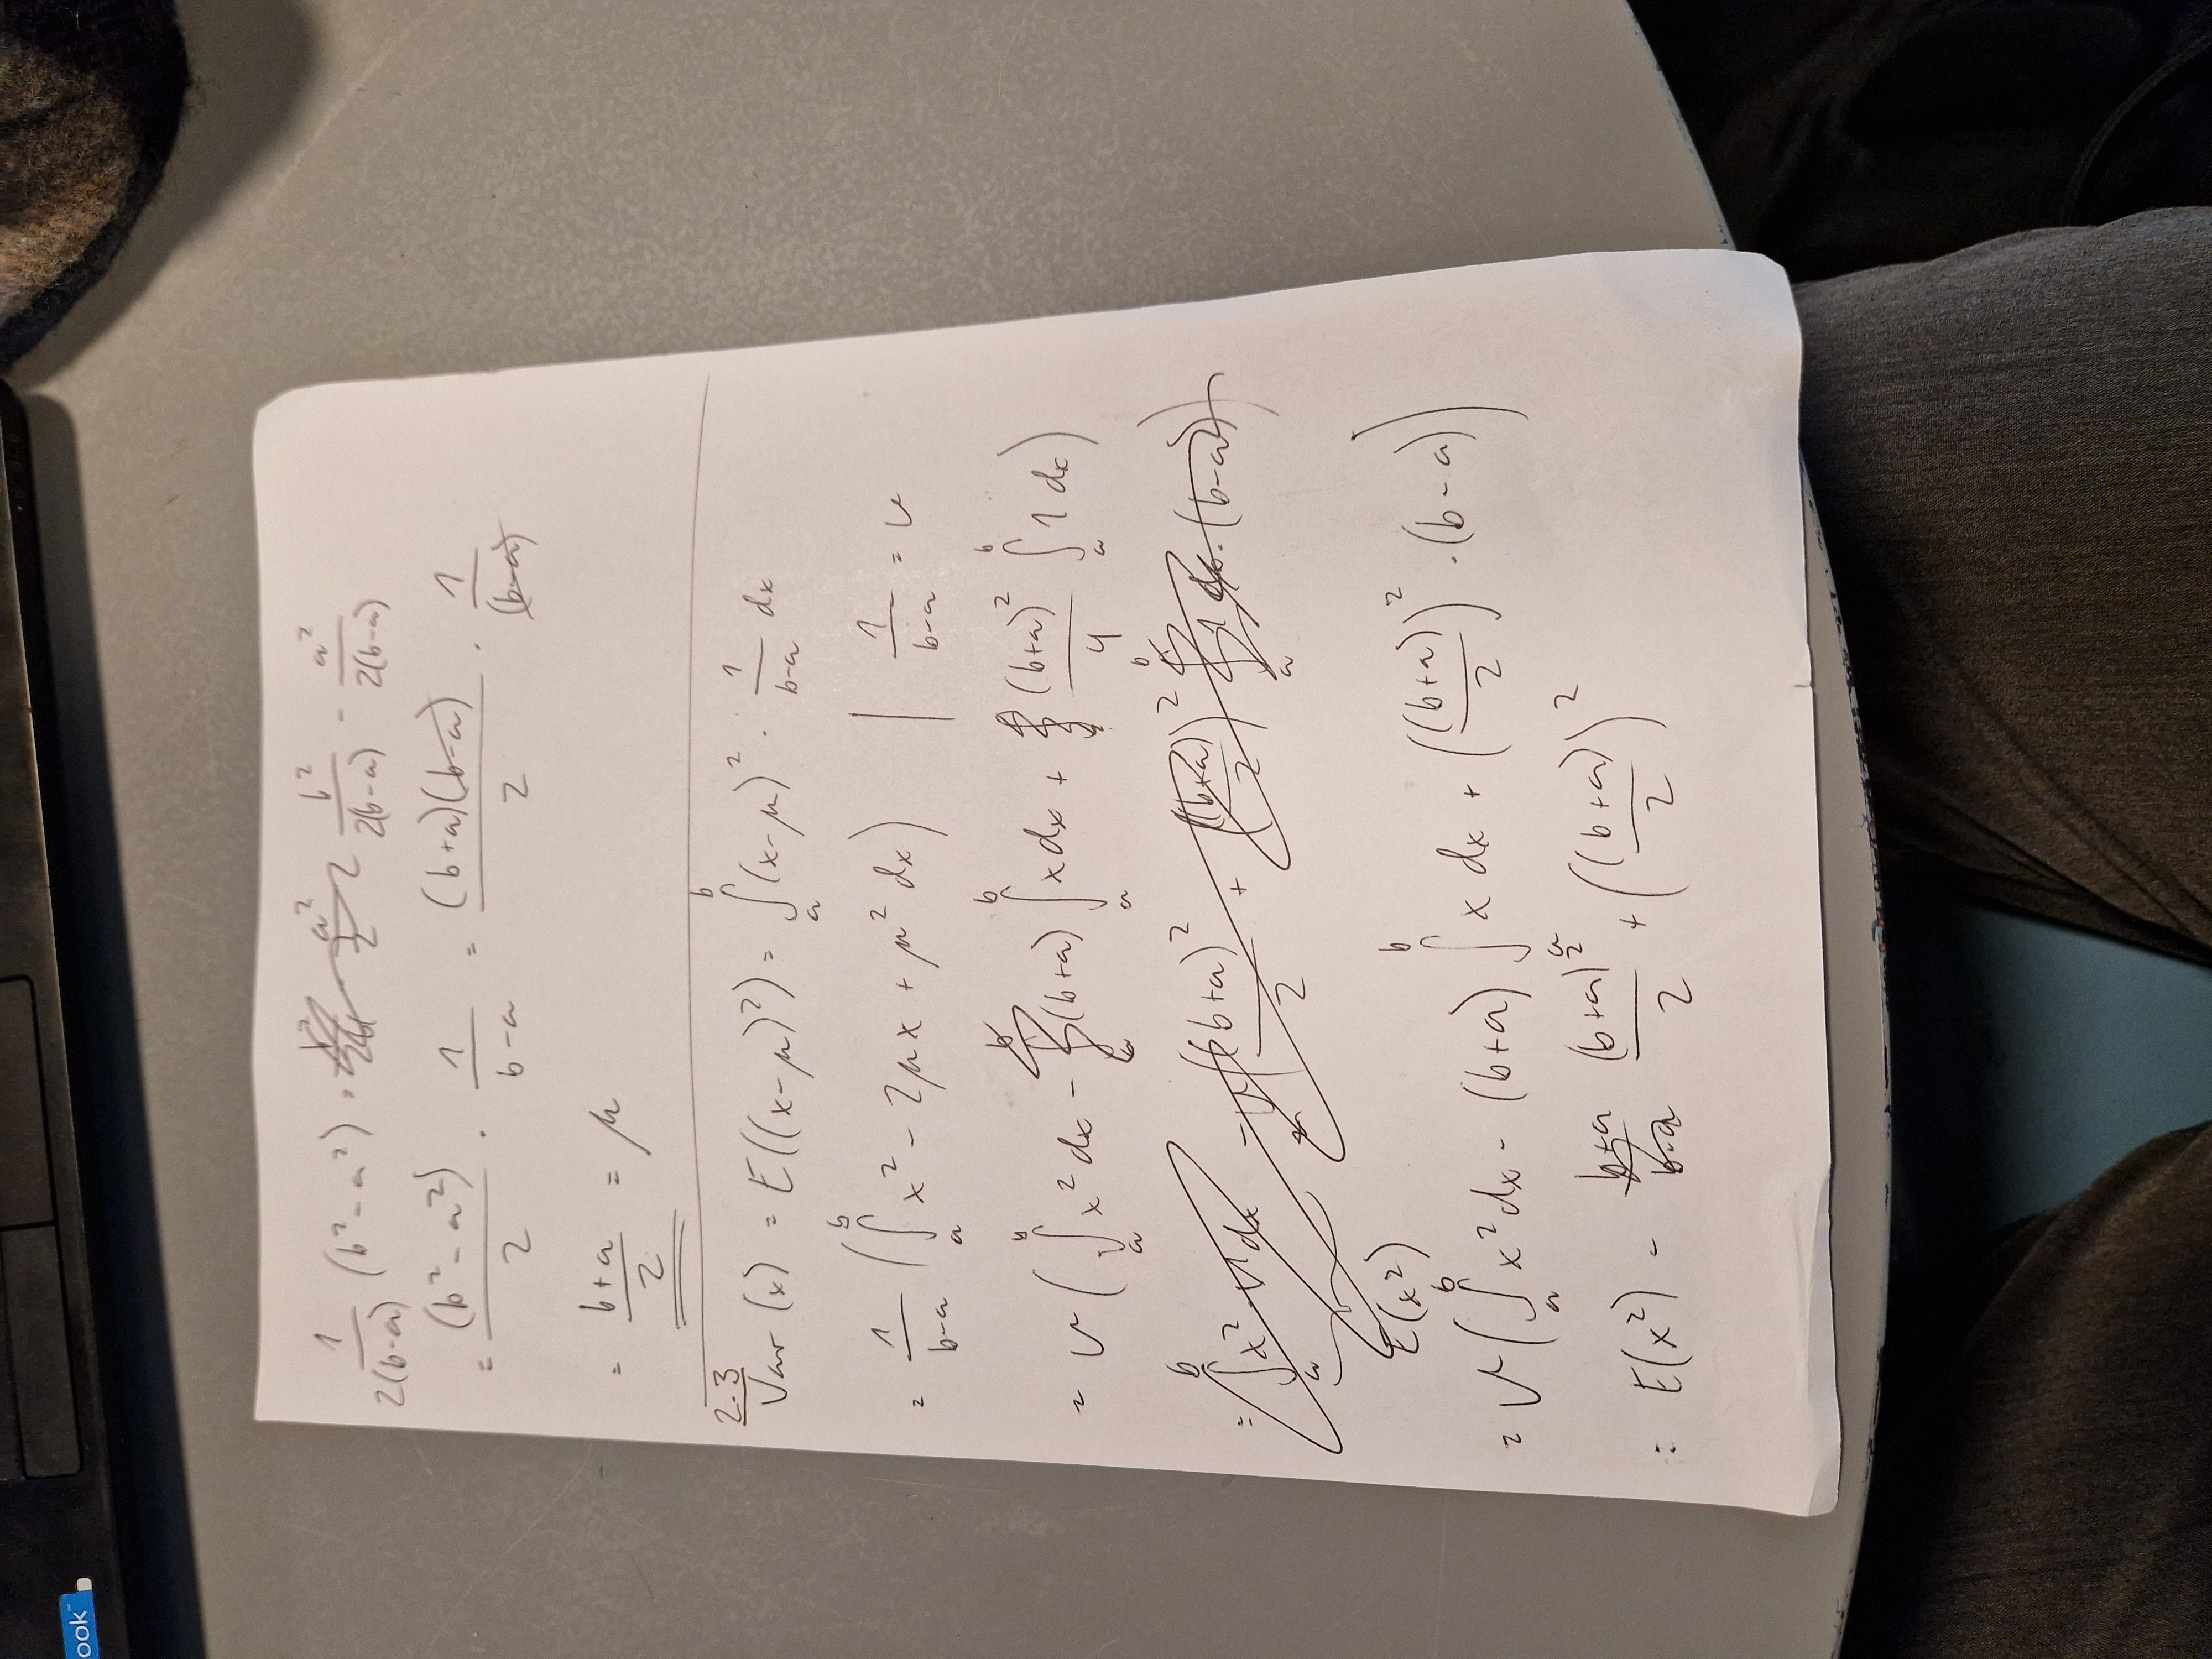 ook™
1/(2(b-a)) (b² - a²) = b²/(2(b-a)) - a²/(2(b-a))
= (b² - a²)/2 · 1/(b-a) = (b+a)(b-a)/2 · 1/(b-a)
= (b+a)/2 = μ
2.3
Var (x) = E((x-μ)²) = ∫_a^b (x-μ)² · 1/(b-a) dx
= 1/(b-a) (∫_a^b x² - 2μx + μ² dx) | 1/(b-a) = v
= v (∫_a^b x² dx - (b+a) ∫_a^b x dx + (b+a)²/4 ∫_a^b 1 dx)
E(x²)
= v (∫_a^b x² dx - (b+a) ∫_a^b x dx + ((b+a)/2)² · (b-a))
= E(x²) - (b+a)²/2 + ((b+a)/2)²